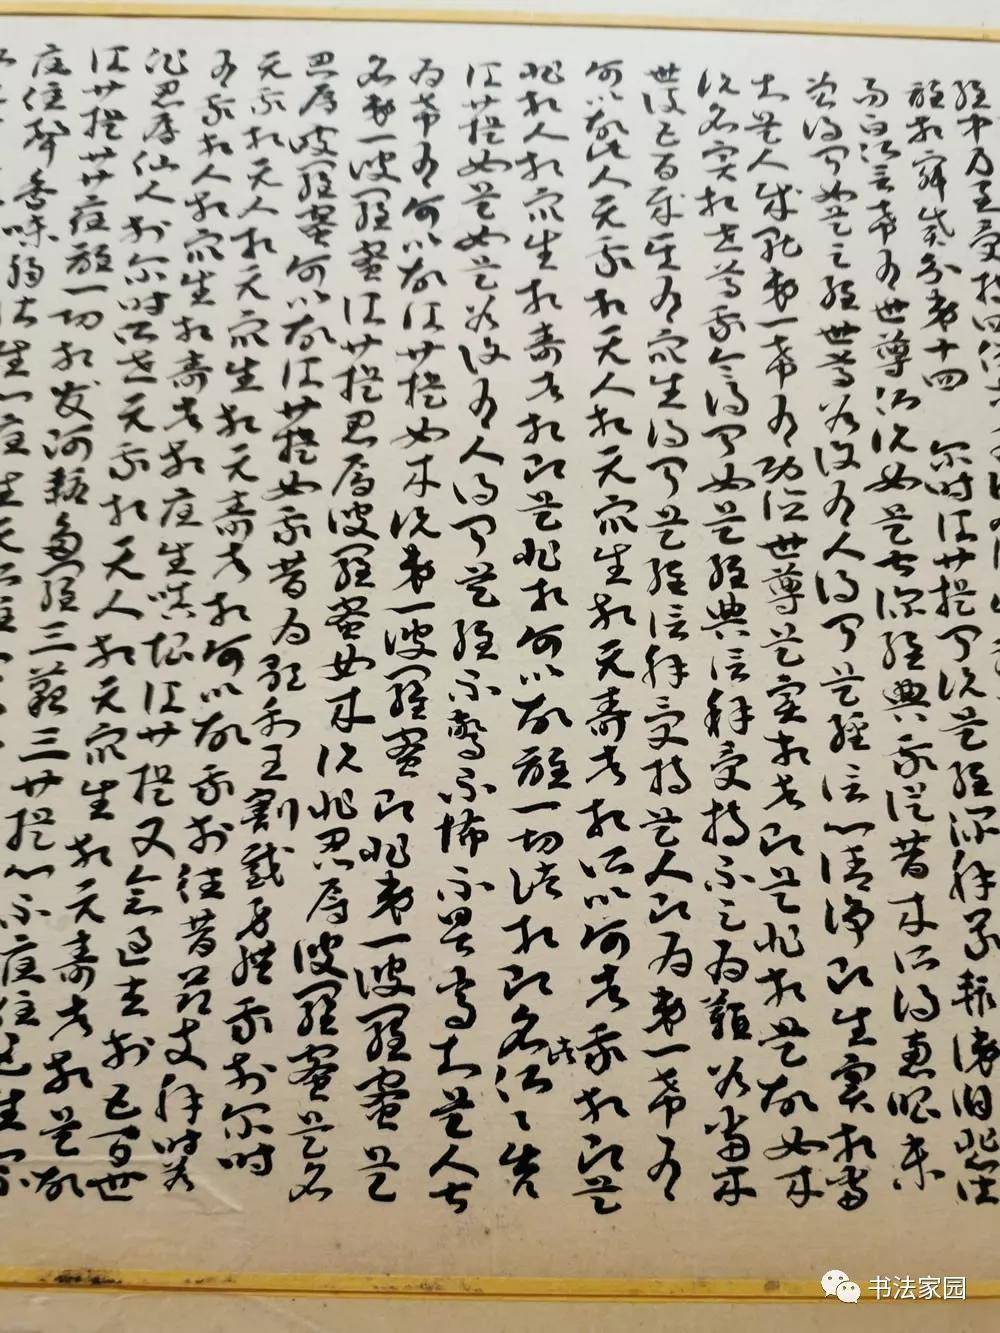 經中乃至受持四句
離相寂滅分第十四 尔时須菩提闻說是經深解義趣涕泪悲泣
而白佛言希有世尊佛說如是甚深經典我從昔来所得慧眼未
曾得闻如是之經世尊若復有人得闻是經信心清淨即生實相當
知是人成就第一希有功德世尊是實相者即是非相是故如来
說名實相世尊我今得闻如是經典信解受持不足为難若當来
世後五百歲其有眾生得闻是經信解受持是人即为第一希有
何以故此人无我相无人相无眾生相无壽者相所以何者我相即是
非相人相眾生相壽者相即是非相何以故離一切諸相即名佛々告
須菩提如是如是若復有人得闻是經不驚不怖不畏當知是人甚
为希有何以故須菩提如来說第一波羅蜜即非第一波羅蜜是
名第一波羅蜜須菩提忍辱波羅蜜如来說非忍辱波羅蜜是名
忍辱波羅蜜何以故須菩提如我昔为歌利王割截身體我於尔时
无我相无人相无眾生相无壽者相何以故我於往昔節支解时若
有我相人相眾生相壽者相应生嗔恨須菩提又念過去於五百世
作忍辱仙人於尔时所世无我相无人相无眾生相无壽者相是故
須菩提菩薩離一切相发阿耨多羅三藐三菩提心不应住色生心
应住聲香味觸法生心应生无所住
书法家园